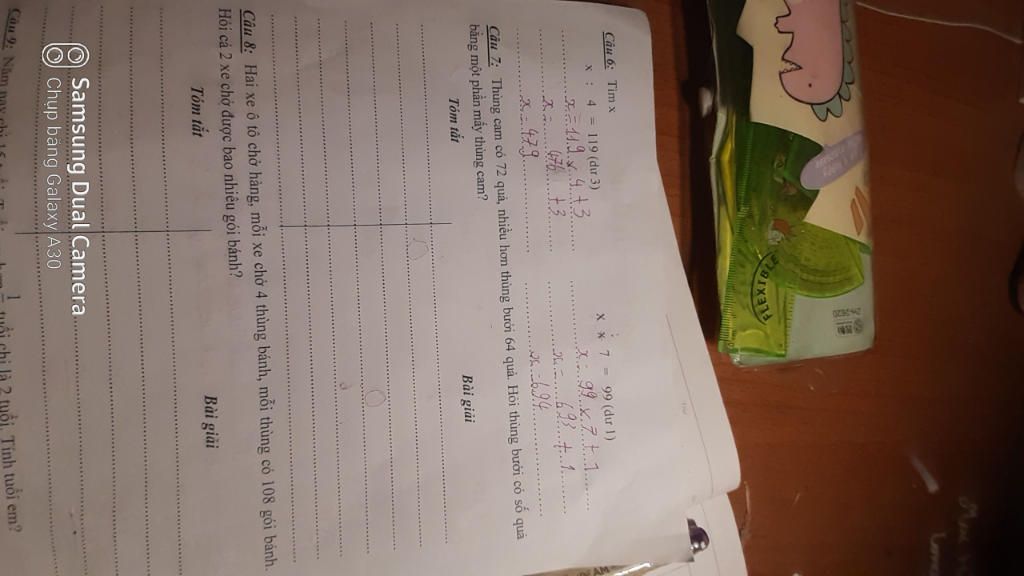 Câu 6: Tìm x
x : 4 = 119 (dư 3)
x : 7 = 99 (dư 1)
x = 119 x 4 + 3
x = 99 x 7 + 1
x = 476 + 3
x = 693 + 1
x = 479
x = 694
Câu 7: Thùng cam có 72 quả, nhiều hơn thùng bưởi 64 quả. Hỏi thùng bưởi có số quả
bằng một phần mấy thùng cam?
Tóm tắt
Bài giải
Câu 8: Hai xe ô tô chở hàng, mỗi xe chở 4 thùng bánh, mỗi thùng có 108 gói bánh.
Hỏi cả 2 xe chở được bao nhiêu gói bánh?
Tóm tắt
Bài giải
Câu 9: Năm nay chị tuổi chị là 2 tuổi. Tính tuổi em?
FLEXIBLE
Samsung Dual Camera
Chụp bằng Galaxy A30